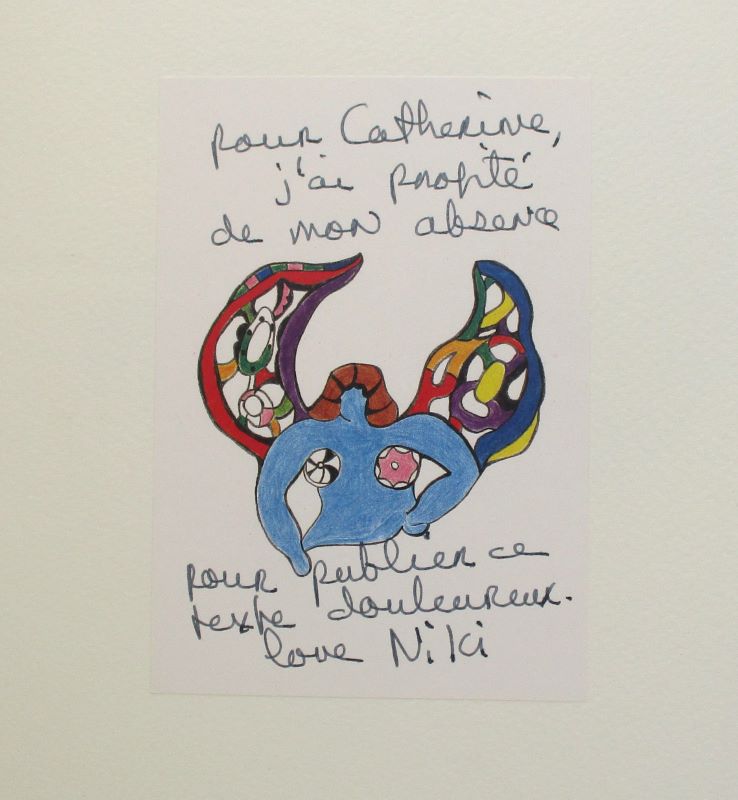 pour Catherine,
j'ai profité
de mon absence
pour publier ce
texte douloureux.
love Niki